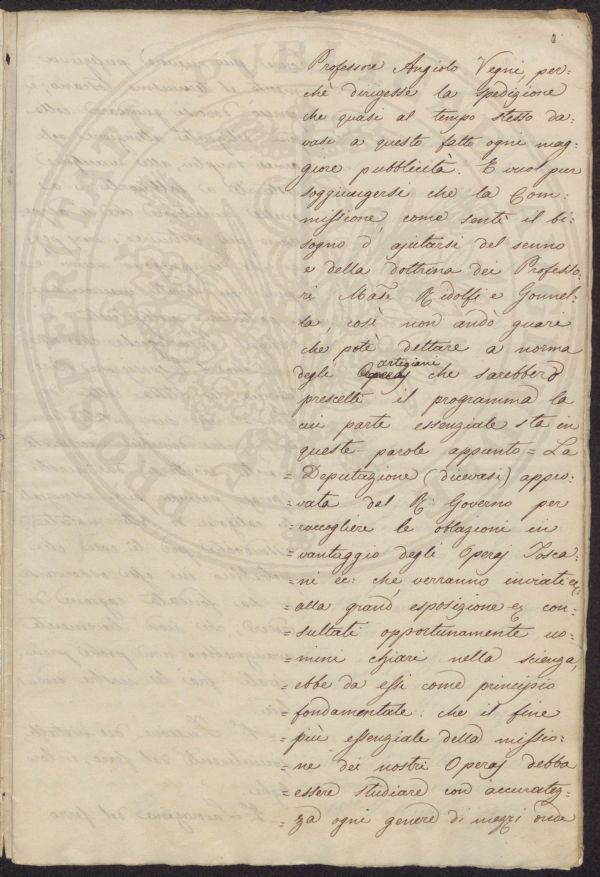 Professore Angiolo Vegni, per-
chè dirigesse la Spedizione
che quasi al tempo stesso da-
vasi a questo fatto ogni mag-
giore pubblicità. E vuol pur
soggiungersi che la Com-
missione, come sentì il bi-
sogno d'ajutarsi del senno
e della dottrina dei Professo-
ri March.e Ridolfi e Gonnel-
la, così non andò guari
che potè dettare a norma
degli Operaj artigiani che sarebbero
prescelti il programma la
cui parte essenziale sta in
queste parole appunto = La
= Deputazione (dicevasi) appro-
= vata dal R. Governo per
= raccogliere le oblazioni in
= vantaggio degli Operaj Tosca-
= ni ec: che verranno inviati ec:
= alla grand' esposizione ec con-
= sultati opportunamente uo-
= mini chiari nella scienza,
= ebbe da essi come principio
= fondamentale che il fine
= più essenziale della missio-
= ne dei nostri Operaj debba
= essere studiare con accuratez-
= za ogni genere di mezzi onde